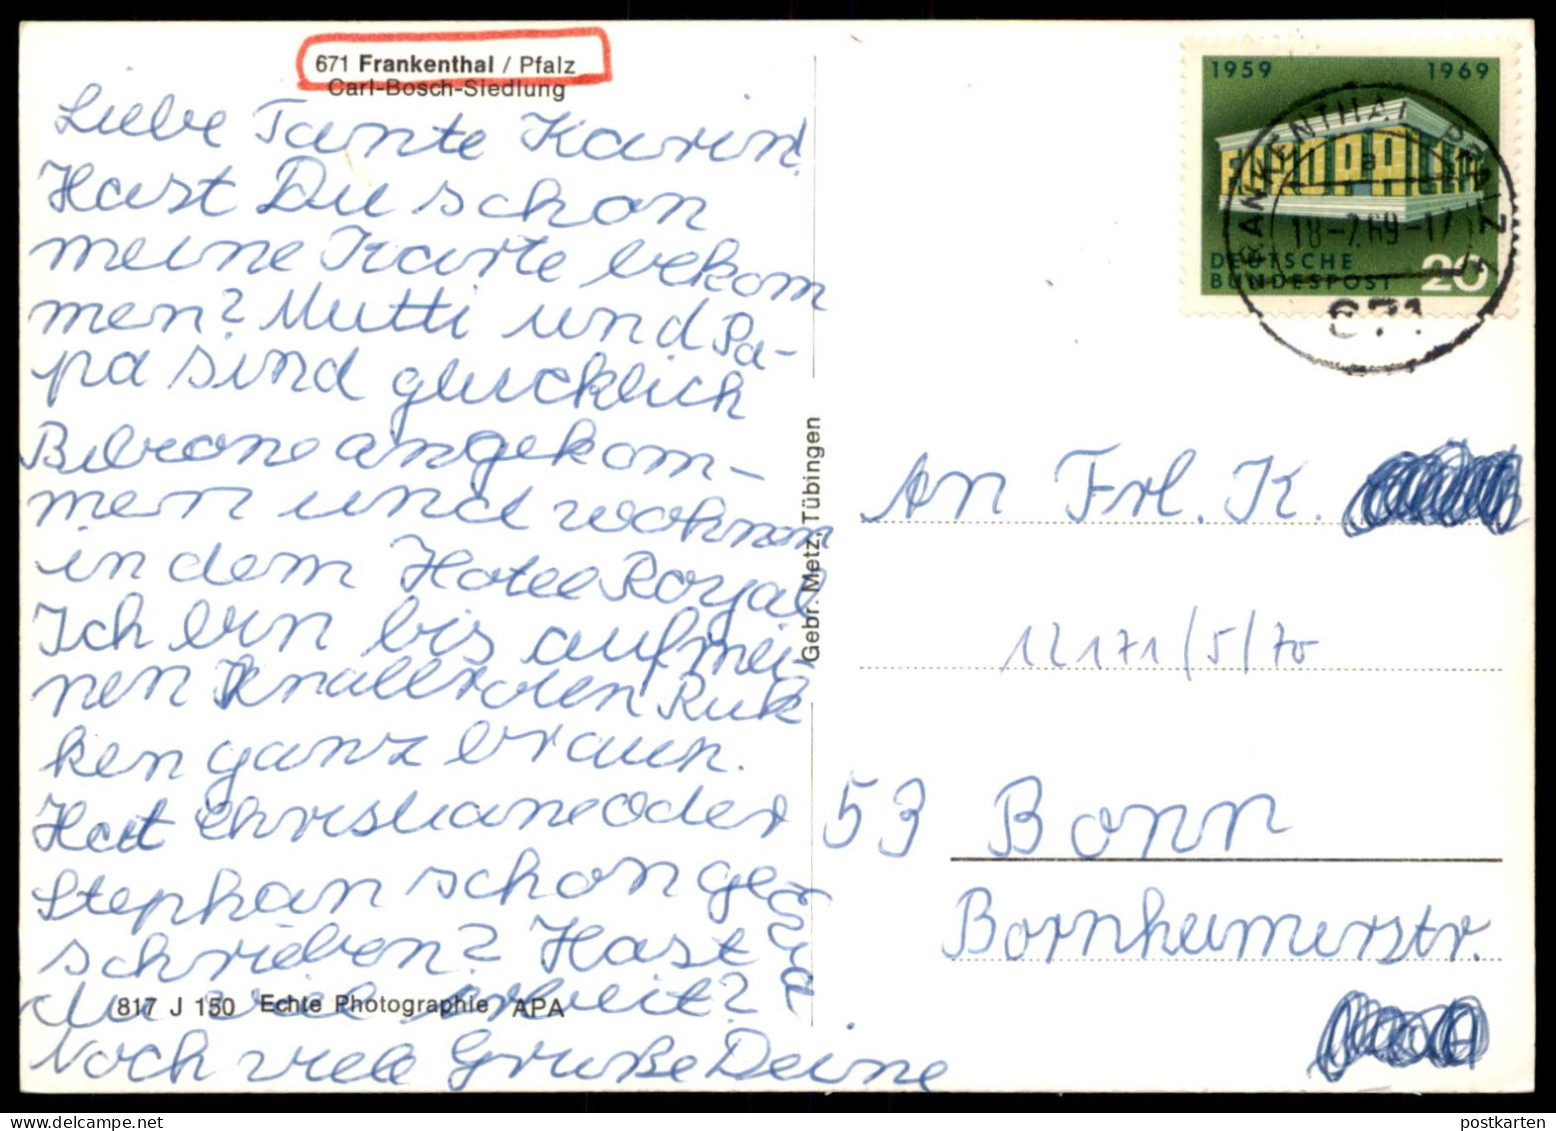 671 Frankenthal / Pfalz
Carl-Bosch-Siedlung
Liebe Tante Karin!
Hast Du schon
meine Karte bekom
men? Mutti und Pa-
pa sind glucklich
Bibione angekom-
men und wohnen
in dem Hotel Royal
Ich bin bis auf mei-
nen knallroten Ruk
ken ganz braun.
Hat Christiane oder
Stephan schon ge
schrieben? Hast
du viel arbeit?
Noch viele Grüße Deine
817 J 150 Echte Photographie APA
Gebr. Metz, Tübingen
1959 1969
DEUTSCHE
BUNDESPOST 20
FRANKENTHAL PFALZ
a
18-7.69-17
671
An Frl. K.
12171/5/70
53 Bonn
Bornheimerstr.
postkarten